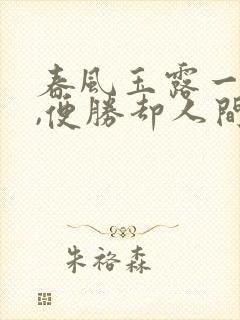 春風玉露一
,便勝却人間
朱裕森